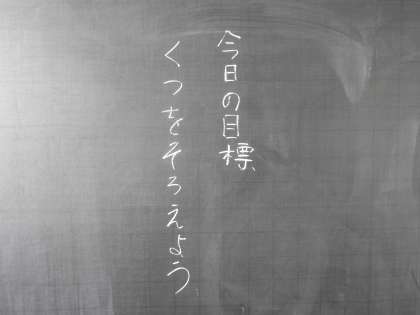 今日の目標
くつをそろえよう